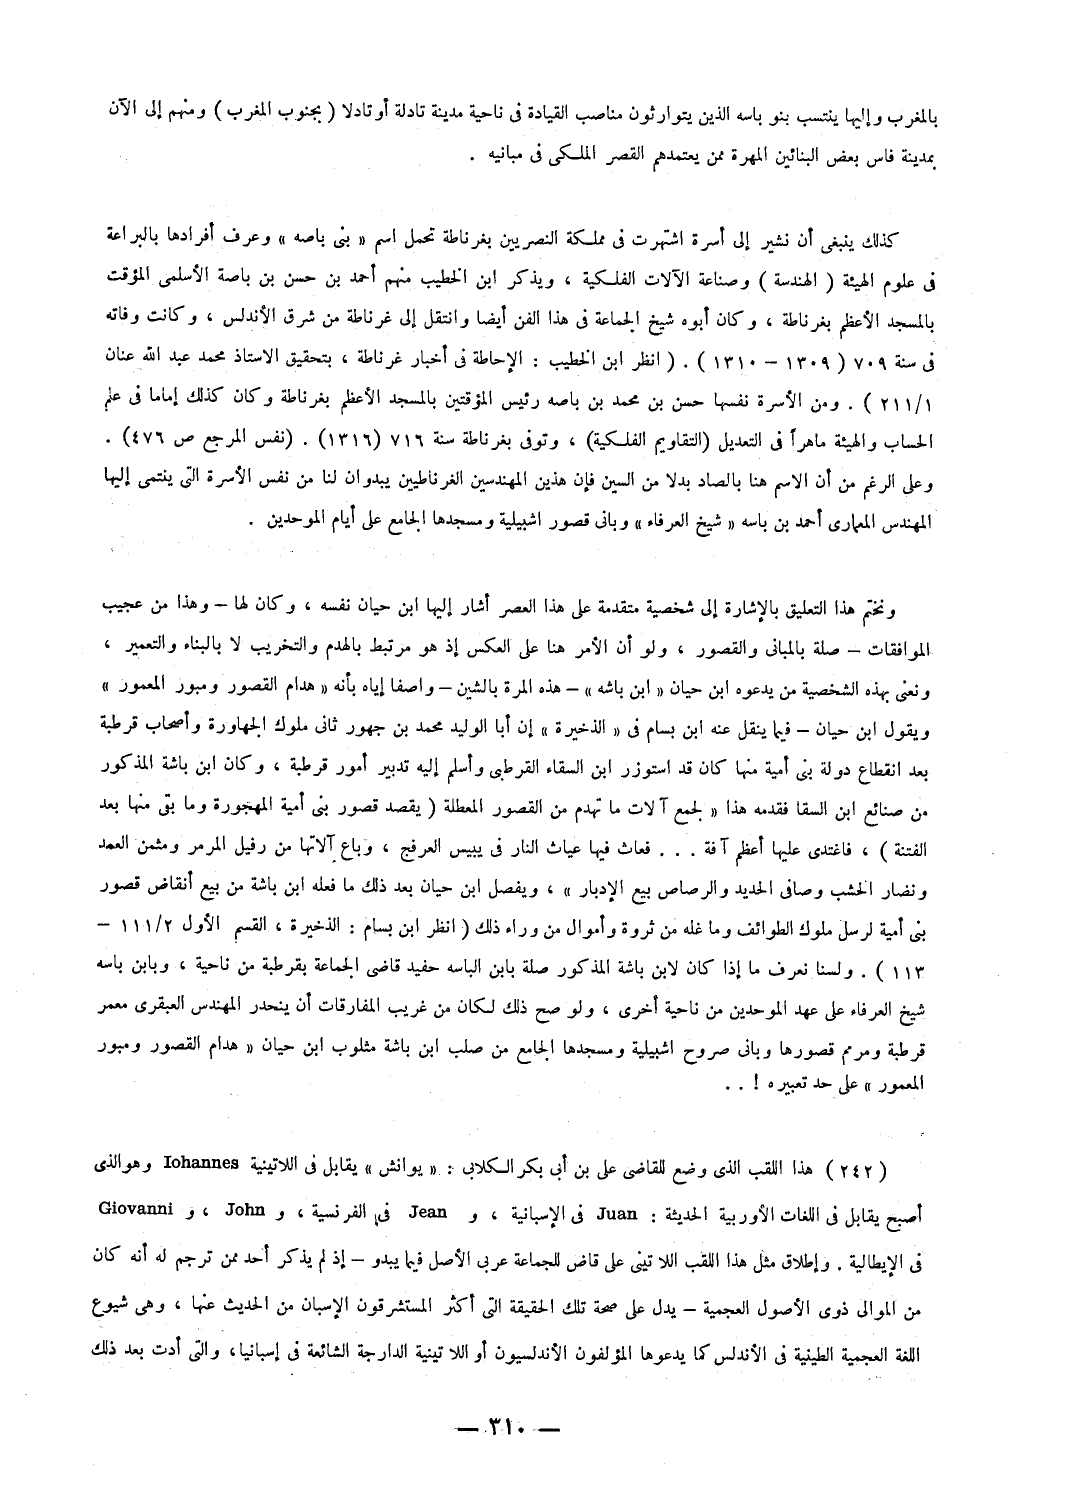 بالمغرب وإليها ينتسب بنو باسه الذين يتوارثون مناصب القيادة فى ناحية مدينة تادلة أو تادلا ( بجنوب المغرب ) ومنهم إلى الآن
بمدينة فاس بعض البنائين المهرة ممن يعتمدهم القصر الملكى فى مبانيه .
كذلك ينبغى أن نشير إلى أسرة اشتهرت فى مملكة النصريين بغرناطة تحمل اسم « بنى باصه » وعرف أفرادها بالبراعة
فى علوم الهيئة ( الهندسة ) وصناعة الآلات الفلكية ، ويذكر ابن الخطيب منهم أحمد بن حسن بن باصة الأسلمى المؤقت
بالمسجد الأعظم بغرناطة ، وكان أبوه شيخ الجماعة فى هذا الفن أيضا وانتقل إلى غرناطة من شرق الأندلس ، وكانت وفاته
فى سنة ٧٠٩ ( ١٣٠٩ – ١٣١٠ ) . ( انظر ابن الخطيب : الإحاطة فى أخبار غرناطة ، بتحقيق الاستاذ محمد عبد الله عنان
٢١١/١ ) . ومن الأسرة نفسها حسن بن محمد بن باصه رئيس المؤقتين بالمسجد الأعظم بغرناطة وكان كذلك إماما فى علم
الحساب والهيئة ماهراً فى التعديل (التقاويم الفلكية) ، وتوفى بغرناطة سنة ٧١٦ (١٣١٦) . (نفس المرجع ص ٤٧٦) .
وعلى الرغم من أن الاسم هنا بالصاد بدلا من السين فإن هذين المهندسين الغرناطيين يبدوان لنا من نفس الأسرة التى ينتمى إليها
المهندس المعمارى أحمد بن باسه « شيخ العرفاء » وبانى قصور اشبيلية ومسجدها الجامع على أيام الموحدين .
ونختم هذا التعليق بالإشارة إلى شخصية متقدمة على هذا العصر أشار إليها ابن حيان نفسه ، وكان لها – وهذا من عجيب
الموافقات – صلة بالمبانى والقصور ، ولو أن الأمر هنا على العكس إذ هو مرتبط بالهدم والتخريب لا بالبناء والتعمير ،
ونعنى بهذه الشخصية من يدعوه ابن حيان « ابن باشه » – هذه المرة بالشين – واصفا إياه بأنه « هدام القصور ومبور المعمور »
ويقول ابن حيان – فيما ينقل عنه ابن بسام فى « الذخيرة » إن أبا الوليد محمد بن جهور ثانى ملوك الجهاورة وأصحاب قرطبة
بعد انقطاع دولة بنى أمية منها كان قد استوزر ابن السقاء القرطبى وأسلم إليه تدبير أمور قرطبة ، وكان ابن باشة المذكور
من صنائع ابن السقا فقدمه هذا « لجمع آلات ما تهدم من القصور المعطلة ( يقصد قصور بنى أمية المهجورة وما بقى منها بعد
الفتنة ) ، فاغتدى عليها أعظم آفة . . . فعاث فيها عياث النار فى يبيس العرفج ، وباع آلاتها من رفيل المرمر ومثمن العمد
ونضار الخشب وصافى الحديد والرصاص بيع الإدبار » ، ويفصل ابن حيان بعد ذلك ما فعله ابن باشة من بيع أنقاض قصور
بنى أمية لرسل ملوك الطوائف وما غله من ثروة وأموال من وراء ذلك ( انظر ابن بسام : الذخيرة ، القسم الأول ١١١/٢ –
١١٣ ) . ولسنا نعرف ما إذا كان لابن باشة المذكور صلة بابن الباسه حفيد قاضى الجماعة بقرطبة من ناحية ، وبابن باسه
شيخ العرفاء على عهد الموحدين من ناحية أخرى ، ولو صح ذلك لكان من غريب المفارقات أن ينحدر المهندس العبقرى معمر
قرطبة ومرمم قصورها وبانى صروح اشبيلية ومسجدها الجامع من صلب ابن باشة مثلوب ابن حيان « هدام القصور ومبور
المعمور » على حد تعبيره ! . .
(٢٤٢) هذا اللقب الذى وضع للقاضى على بن أبى بكر الكلابى : « يوانش » يقابل فى اللاتينية Iohannes وهو الذى
أصبح يقابل فى اللغات الأوربية الحديثة : Juan فى الإسبانية ، و Jean فى الفرنسية ، و John ، و Giovanni
فى الإيطالية . وإطلاق مثل هذا اللقب اللاتينى على قاض للجماعة عربى الأصل فيما يبدو – إذ لم يذكر أحد ممن ترجم له أنه كان
من الموالى ذوى الأصول العجمية – يدل على صحة تلك الحقيقة التى أكثر المستشرقون الإسبان من الحديث عنها ، وهى شيوع
اللغة العجمية الطينية فى الأندلس كما يدعوها المؤلفون الأندلسيون أو اللاتينية الدارجة الشائعة فى إسبانيا، والتى أدت بعد ذلك
— ٣١٠ —